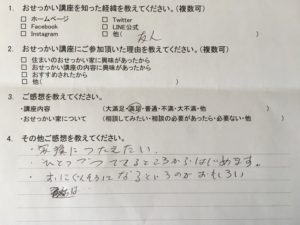 1. おせっかい講座を知った経緯を教えてください。(複数可)
□ ホームページ □ Twitter
□ Facebook □ LINE公式
□ Instagram □ 他( 友人
2. おせっかい講座にご参加頂いた理由を教えてください。(複数可)
□ 住まいのおせっかい家に興味があったから
□ おせっかい講座の内容に興味があったから
□ おすすめされたから
□ 他( )
3. ご感想を教えてください。
・講座について (大満足・満足・普通・不満・大不満・他 )
・おせっかい家について (相談してみたい・相談の必要があったら・必要ない・他 )
4. その他ご感想を教えてください。
・家族につたえたい。
・ひとつづつできるところからはじめます。
・おにぐんそうになるというのがおもしろい